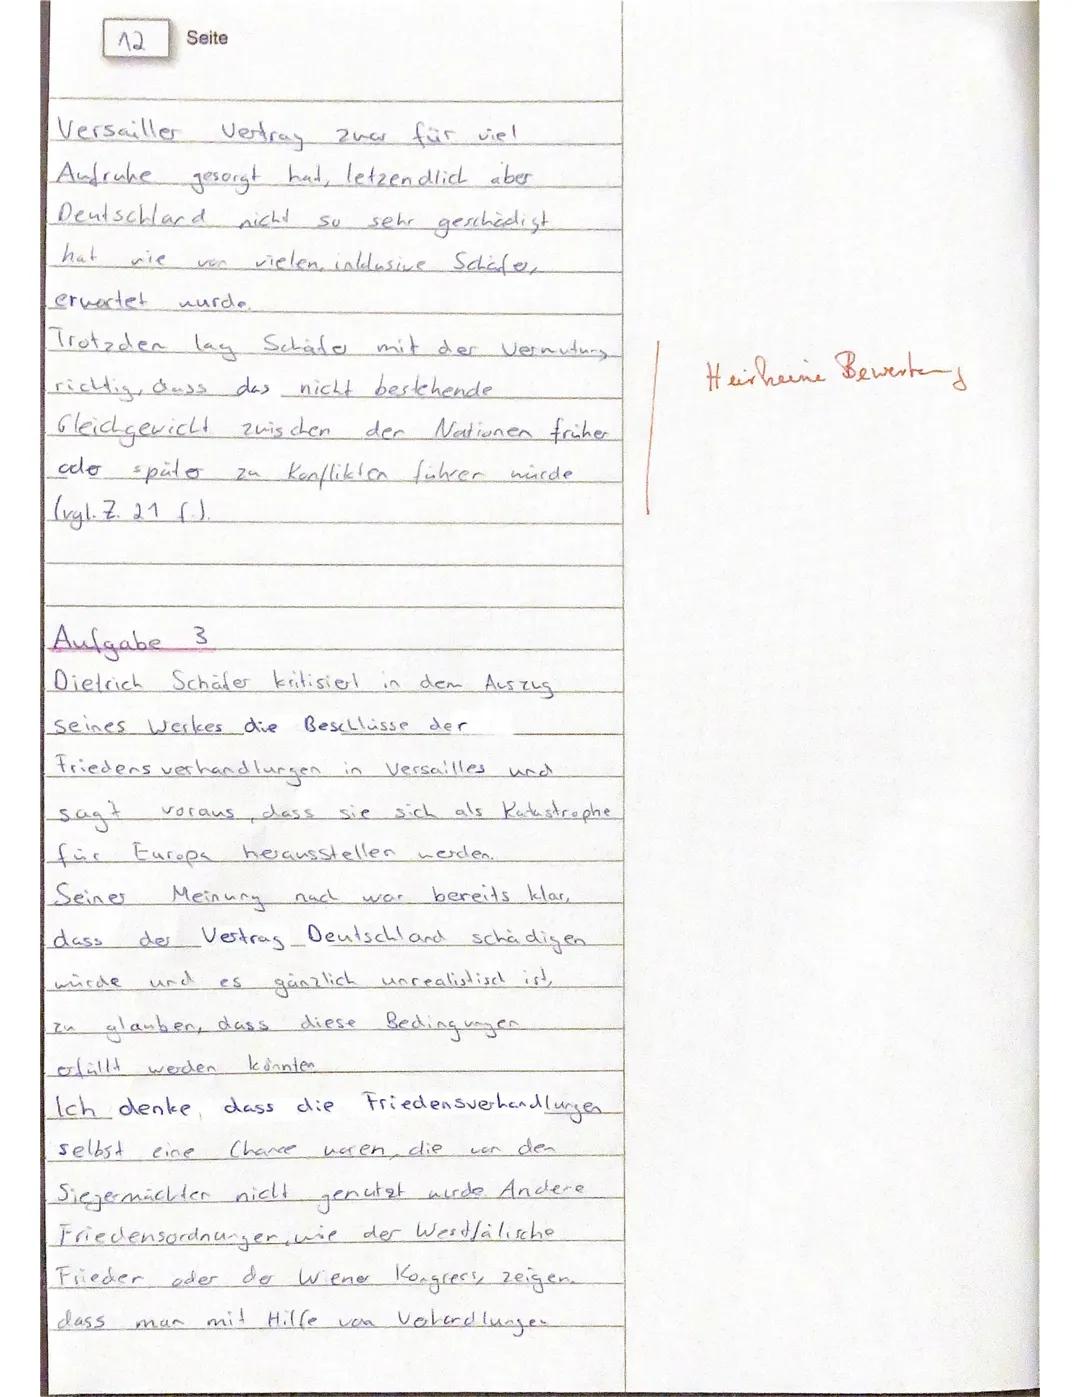 12 Seite
Versailler Vertrag zwar für viel
Aufruhe gesorgt hat, letzendlich aber
Deutschland nicht so sehr geschädigt
hat wie von vielen, inklusive Schäfer,
erwartet wurde.
Trotzdem lag Schäfer mit der Vermutung
richtig, dass das nicht bestehende
Gleichgewicht zwischen den Nationen früher
oder später zu Konflikten führen würde
(vgl. Z. 21 f.).
Hier keine Bewertung
Aufgabe 3
Dietrich Schäfer kritisiert in dem Auszug
seines Werkes die Beschlüsse der
Friedensverhandlungen in Versailles und
sagt voraus, dass sie sich als Katastrophe
für Europa herausstellen werden.
Seiner Meinung nach war bereits klar,
dass der Vertrag Deutschland schädigen
würde und es gänzlich unrealistisch ist,
zu glauben, dass diese Bedingungen
erfüllt werden könnten
Ich denke, dass die Friedensverhandlungen
selbst eine Chance waren, die von den
Siegermächten nicht genutzt wurde. Andere
Friedensordnungen, wie der Westfälische
Frieden oder der Wiener Kongress, zeigen,
dass man mit Hilfe von Verhandlungen